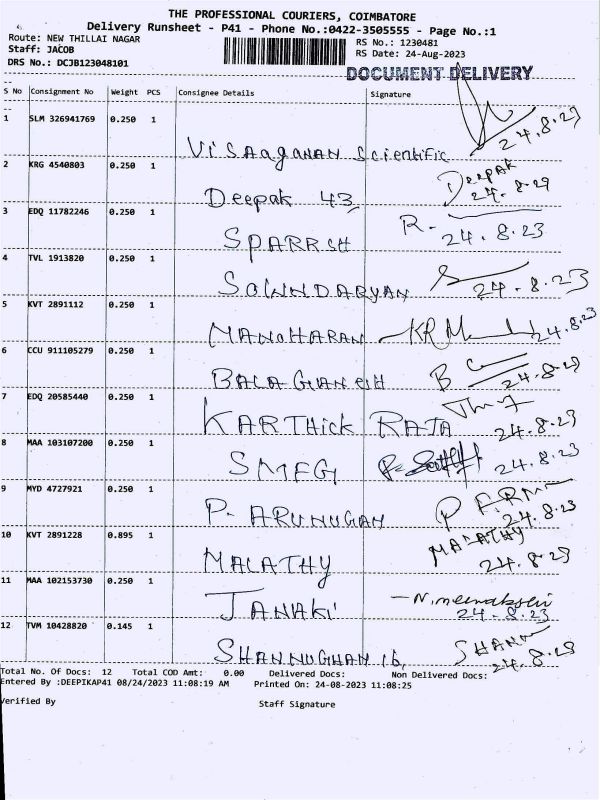 THE PROFESSIONAL COURIERS, COIMBATORE
Delivery Runsheet - P41 - Phone No.:0422-3505555 - Page No.:1
Route: NEW THILLAI NAGAR
RS No.: 1230481
Staff: JACOB
RS Date: 24-Aug-2023
DRS No.: DCJB123048101
DOCUMENT DELIVERY
S No Consignment No Weight PCS Consignee Details Signature
1 SLM 326941769 0.250 1
Visaaganan Scientific 24.8.23
2 KRG 4540803 0.250 1
Deepak 43 Deepak 24.8.23
3 EDQ 11782246 0.250 1
SPARRSH R. 24.8.23
4 TVL 1913820 0.250 1
SOWNDARYAN 24.8.23
5 KVT 2891112 0.250 1
MANOHARAN 24.8.23
6 CCU 911105279 0.250 1
BALAGANESH B 24.8.23
7 EDQ 20585440 0.250 1
KARTHick RAJA 24.8.23
8 MAA 103107200 0.250 1
SMFG 24.8.23
9 MYD 4727921 0.250 1
P. ARUNUGAN 24.8.23
10 KVT 2891228 0.895 1
MALATHY MALATHY 24.8.23
11 MAA 102153730 0.250 1
JANAKI N. meenakshi 24.8.23
12 TVM 10428820 0.145 1
SHANNUGHAN 16, SHANN 24.8.23
Total No. Of Docs: 12 Total COD Amt: 0.00 Delivered Docs: Non Delivered Docs:
Entered By :DEEPIKAP41 08/24/2023 11:08:19 AM Printed On: 24-08-2023 11:08:25
Verified By Staff Signature